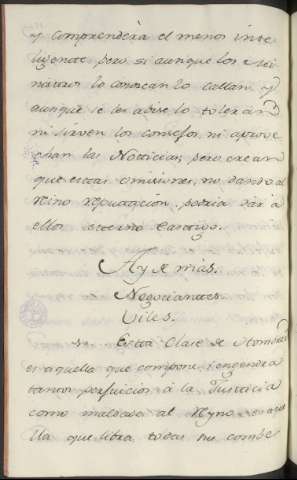 y comprenderà el menos inte
ligente pero si aunque los Mi
nistros lo conoscan lo callan y
aunque se les avise lo toleran
ni sirven los consejos, ni aprove
chan las Notticias, pero crean
que estas omiciones, no dando al
Reino reparacion, podria dar à
ellos eterno Castigo.
Ay de mias.
Negociantes
Utiles.
Esta Clase de Hombres
es aquella que compone, i engendra
tantos perjuicios à la Justicia
como maldades al Reyno es aque
lla que libra todas sus combe